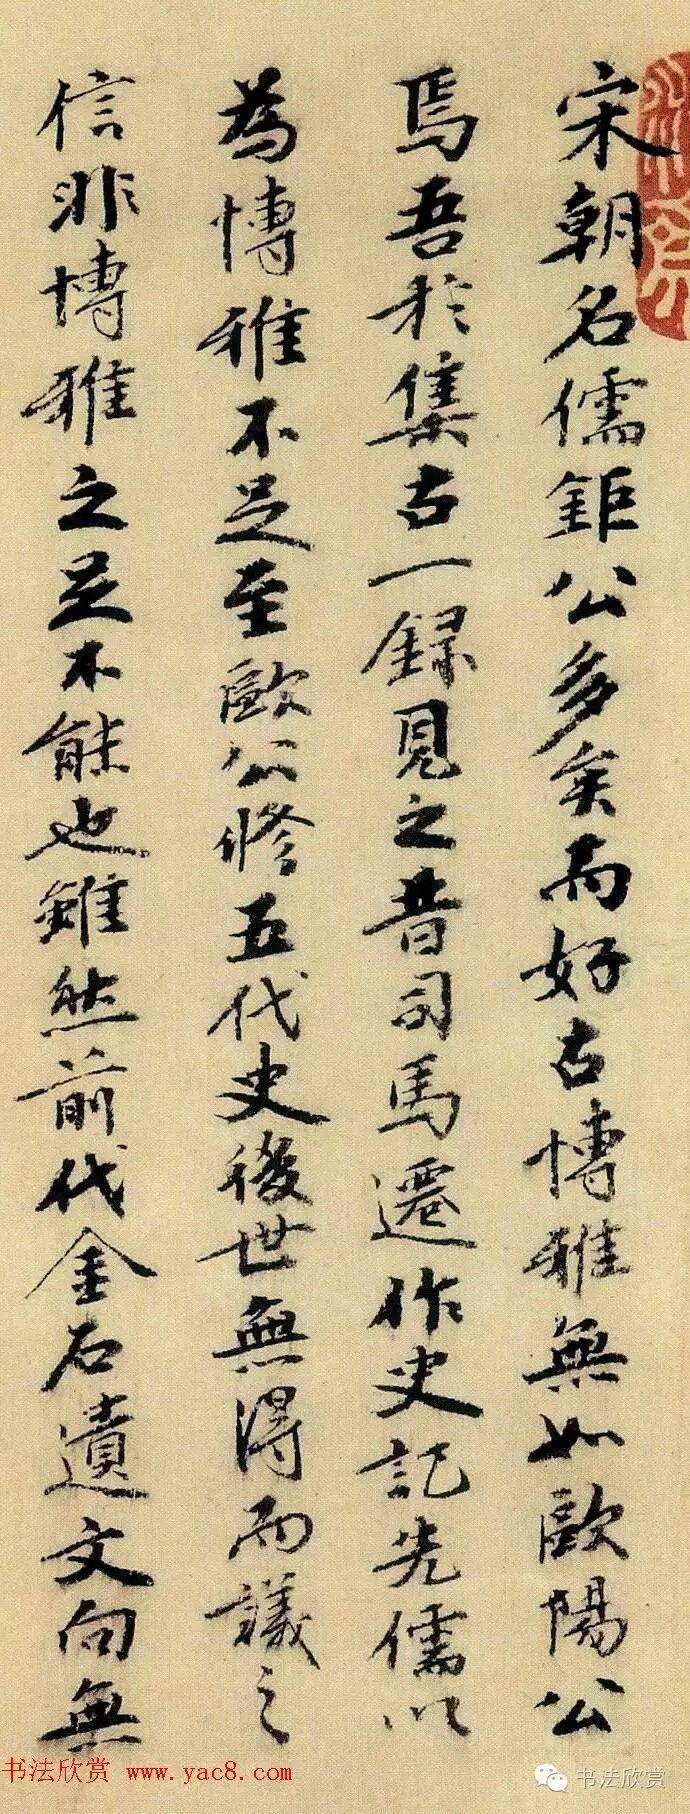 宋朝名儒鉅公多矣而好古博雅無如歐陽公
焉吾於集古一錄見之昔司馬遷作史記先儒以
為博雅不足至歐公修五代史後世無得而議之
信非博雅之足不能也雖然前代金石遺文向無
书法欣赏 www.yac8.com
书法欣赏